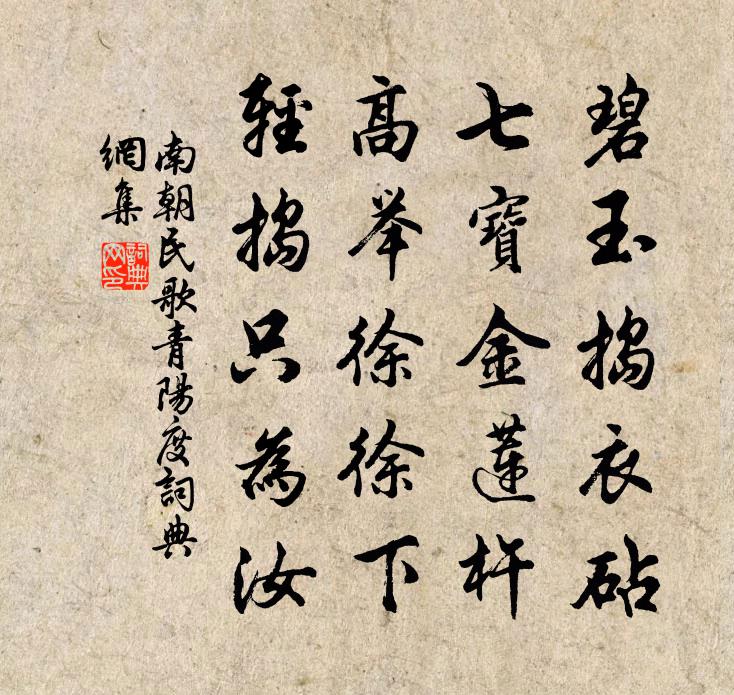 碧玉搗衣砧
七寶金蓮杵
高举徐徐下
輕搗只為汝
南朝民歌青陽度詞典
網集
詞典
网印